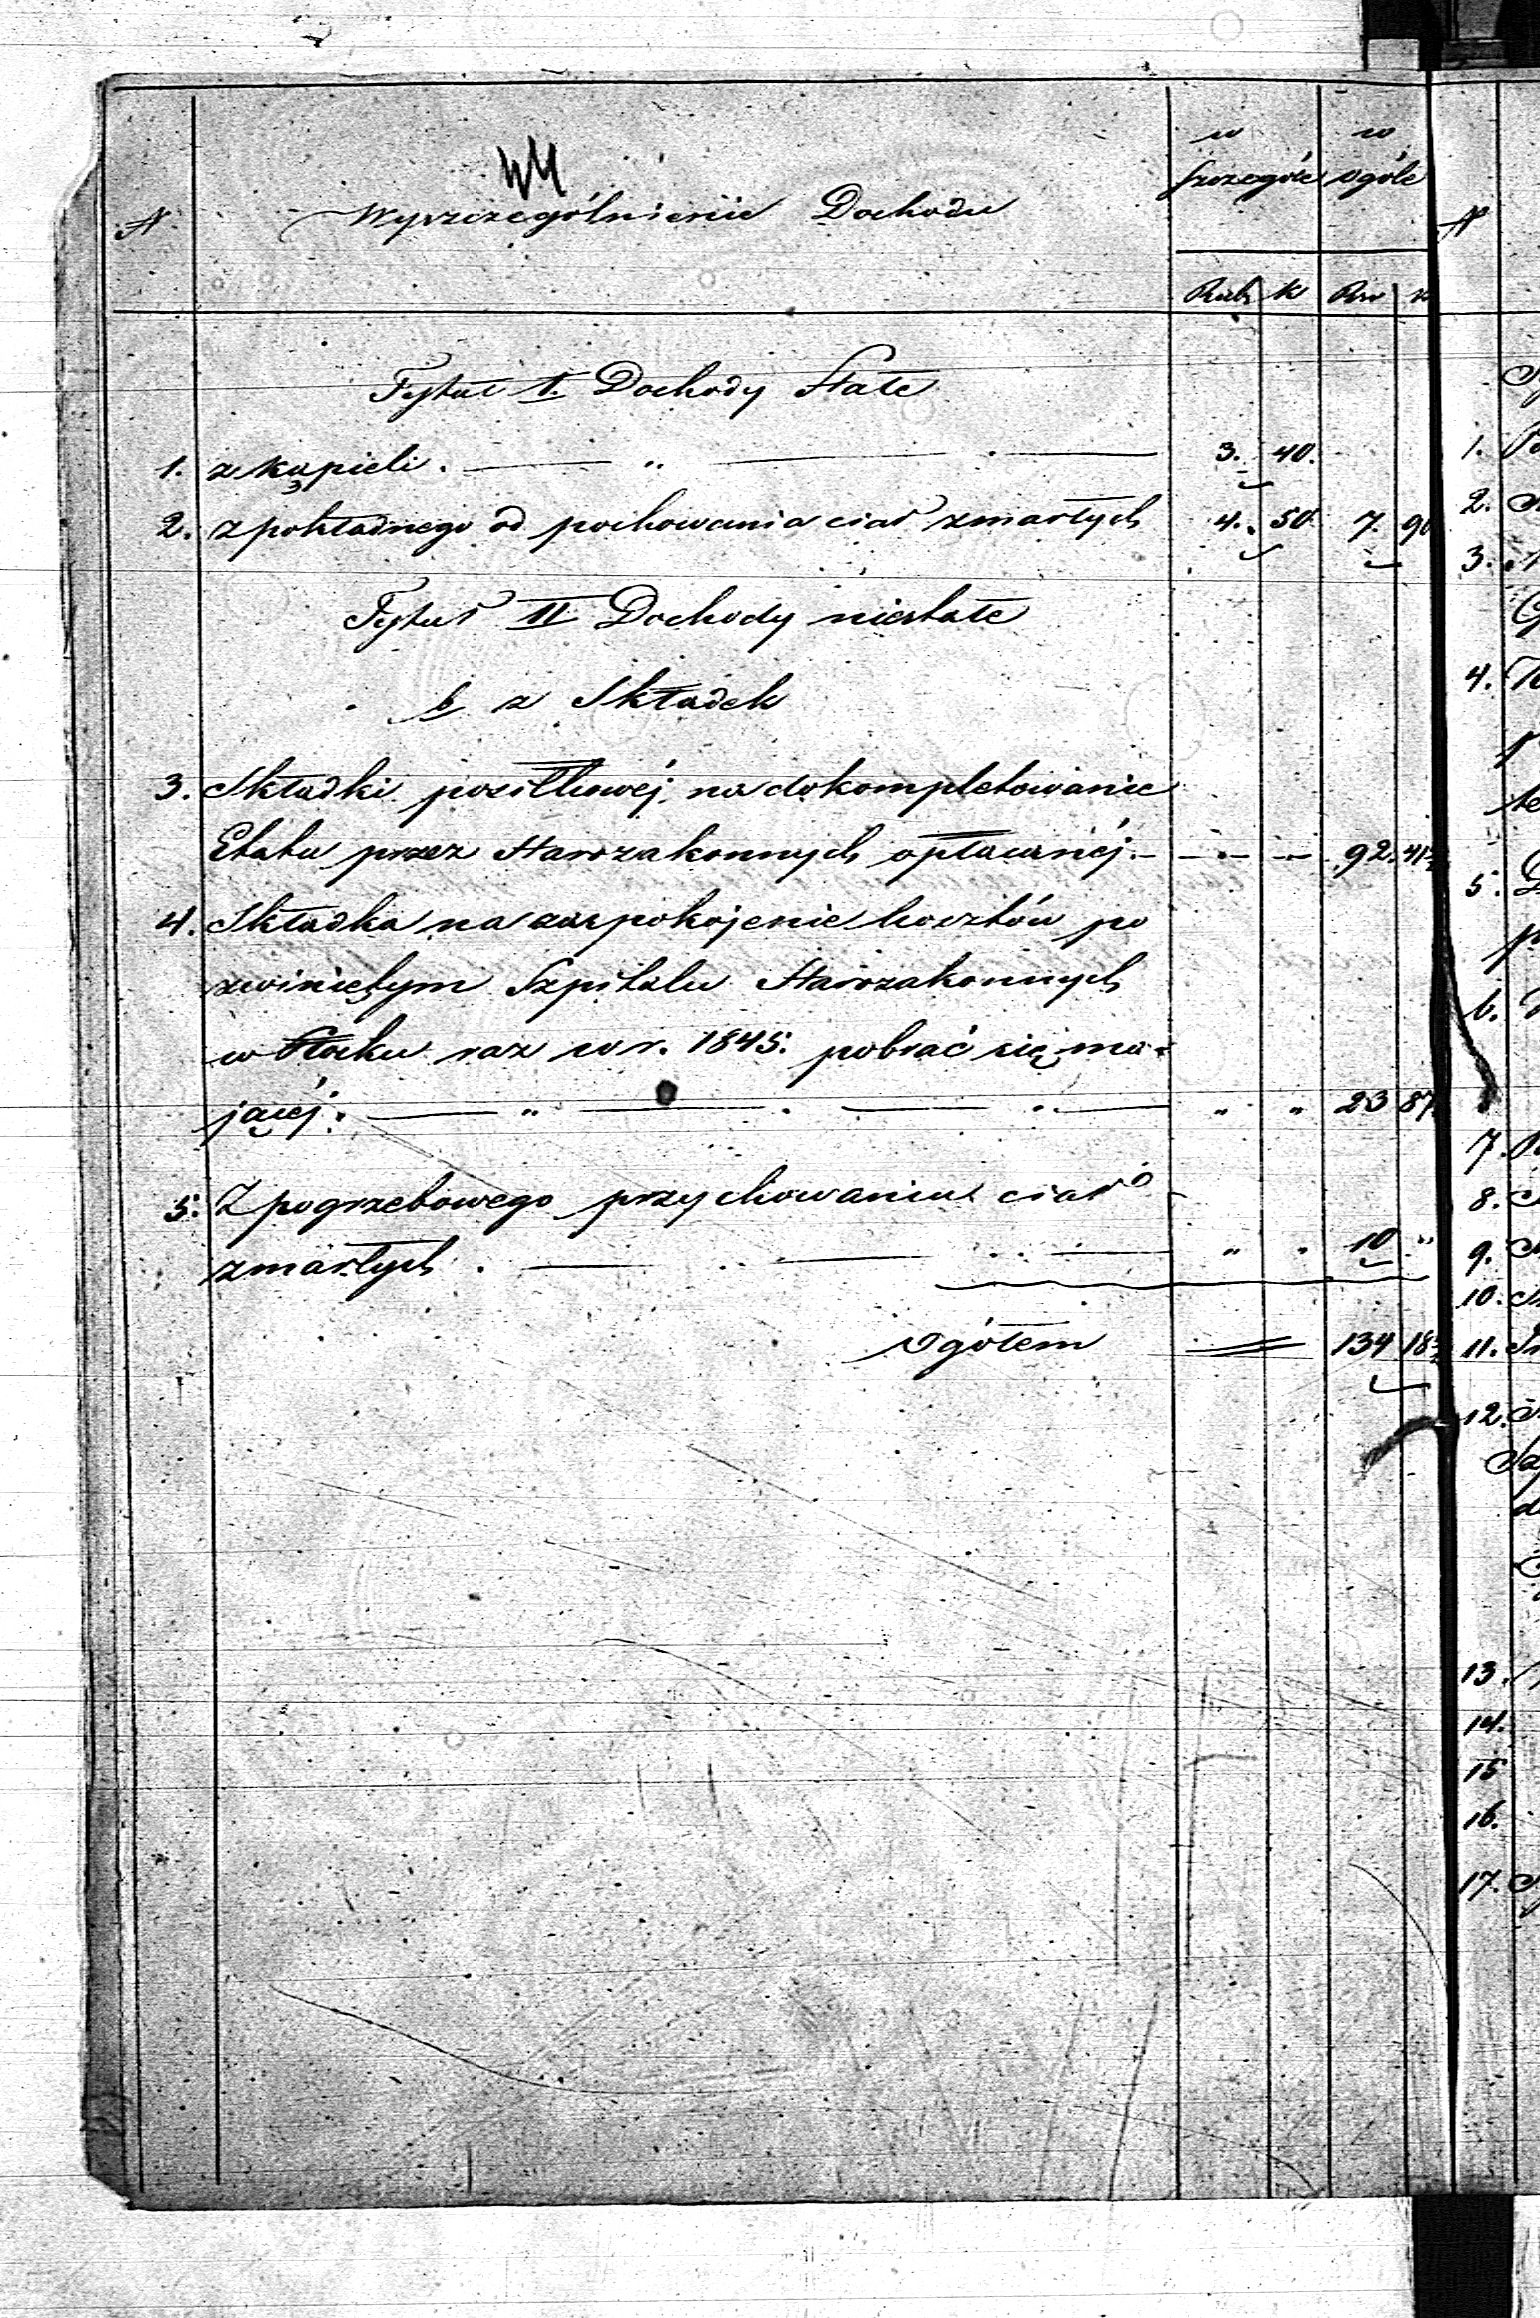 44
w w
N Wyszczególnienie Dochodu szczególe ogóle N
Rub k Rsr k
Tytuł I. Dochody Stałe
1. z kąpieli. — " — . — 3. 40. 1.
2. z pokładnego od pochowania ciał zmarłych 4. 50 7. 90 2.
3.
Tytuł II Dochody niestałe
b z Składek 4.
3. Składki posiłkowéj na dokompletowanie
Etatu przez Starozakonnych opłacanéj. — . — 92. 41½
5.
4. Składka na zaspokojenie kosztów po
zwiniętym Szpitalu Starozakonnych
6.
w Płocku raz w r. 1845. pobrać się ma=
jącéj. — " — . — " — " " 23 87
7.
5. Z pogrzebowego przy chowaniu ciał 8.
zmarłych . — . . — . . — " . 10 " 9.
10.
Ogółem = 134 18½ 11.
12.
13.
14.
15
16.
17.